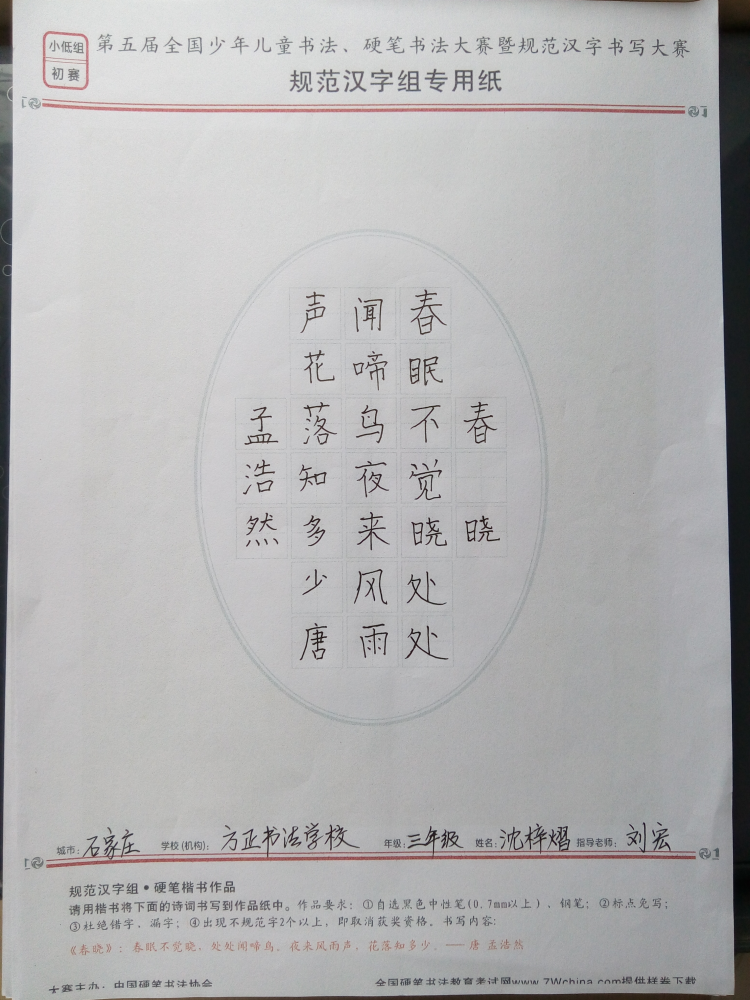 小低组
初赛
第五届全国少年儿童书法、硬笔书法大赛暨规范汉字书写大赛
规范汉字组专用纸
春晓
春眠不觉晓处处
闻啼鸟夜来风雨
声花落知多少唐
孟浩然
城市：石家庄 学校(机构)：方正书法学校 年级：三年级 姓名：沈梓熠 指导老师：刘宏
规范汉字组•硬笔楷书作品
请用楷书将下面的诗词书写到作品纸中。作品要求：①自选黑色中性笔(0.7mm以上）、钢笔；②标点免写；
③杜绝错字，漏字；④出现不规范字2个以上，即取消获奖资格。书写内容：
《春晓》：春眠不觉晓，处处闻啼鸟。夜来风雨声，花落知多少。——唐 孟浩然
大赛主办：中国硬笔书法协会 全国硬笔书法教育考试网www.7Wchina.com提供样卷下载